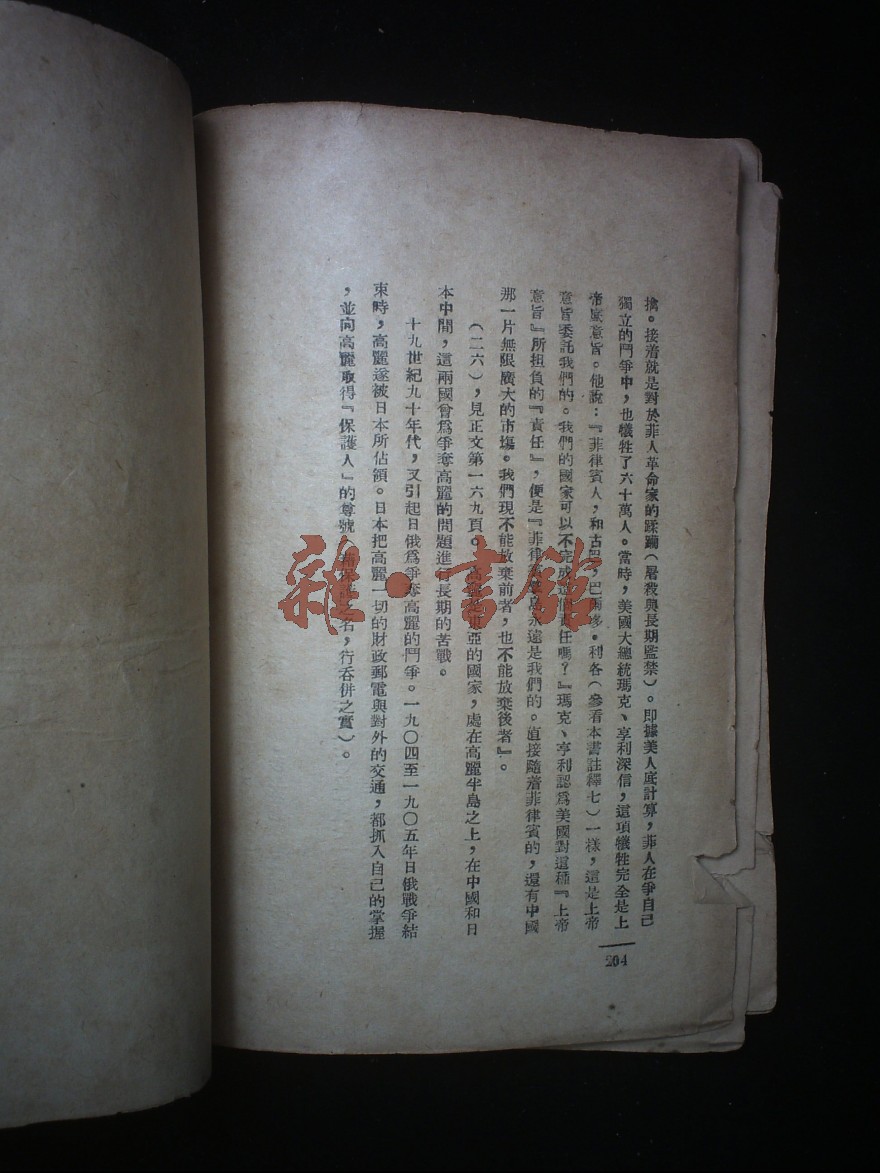 擒。接着就是對於菲人革命家的蹂躪(屠殺與長期監禁)。即據美人底計算,菲人在爭自己
獨立的鬥爭中,也犧牲了六十萬人。當時,美國大總統瑪克、亨利深信,這項犧牲完全是上
帝底意旨。他說:『菲律賓人,和古巴,巴爾多·利各(參看本書註釋七)一樣,這是上帝
意旨委託我們的。我們的國家可以不完成這個責任嗎?』瑪克、亨利認爲美國對這種『上帝
意旨』所担負的『責任』,便是『菲律賓羣島永遠是我們的。直接隨着菲律賓的,還有中國
那一片無限廣大的市塲。我們現不能放棄前者,也不能放棄後者』。
(二六),見正文第一六九頁。高麗是東亞的國家,處在高麗半島之上,在中國和日
本中間,這兩國曾爲爭奪高麗的問題進行長期的苦戰。
十九世紀九十年代,又引起日俄爲爭奪高麗的鬥爭。一九〇四至一九〇五年日俄戰爭結
束時,高麗遂被日本所佔領。日本把高麗一切的財政郵電與對外的交通,都抓入自己的掌握
,並向高麗取得『保護人』的尊號 保護之名,行吞併之實)。
204
雜·書館